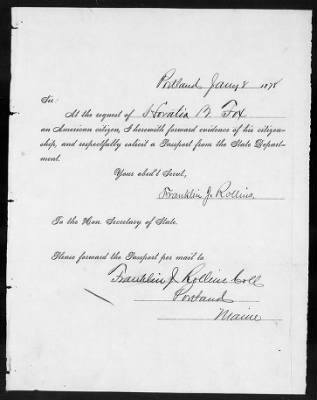 Portland Jany 8 1878
Sir:
At the request of Horatia B. Fox
an American citizen, I herewith forward evidence of his citizen-
ship, and respectfully solicit a Passport from the State Depart-
ment.
Your obed't Servt,
Franklin J. Rollins.
To the Hon. Secretary of State.
Please forward the Passport per mail to
Franklin J Rollins Coll
Portland
Maine